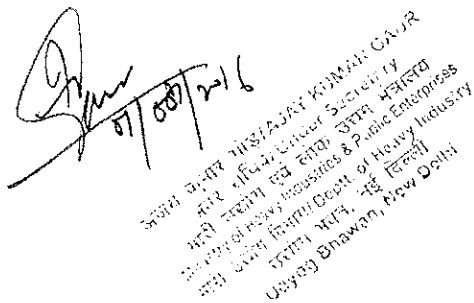 01/08/2016
अजय कुमार गौड़/AJAY KUMAR GAUR
अवर सचिव/Under Secretary
भारी उद्योग एवं लोक उद्यम मंत्रालय
Ministry of Heavy Industries & Public Enterprises
भारी उद्योग विभाग/Deptt. of Heavy Industry
उद्योग भवन, नई दिल्ली
Udyog Bhawan, New Delhi